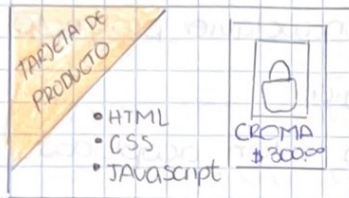 TARJETA DE
PRODUCTO
• HTML
• CSS
• JAVAScript
CROMA
$300.00